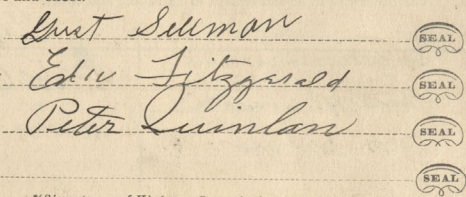 Gust Sellman SEAL
Edw Fitzgerald SEAL
Peter Quinlan SEAL
SEAL